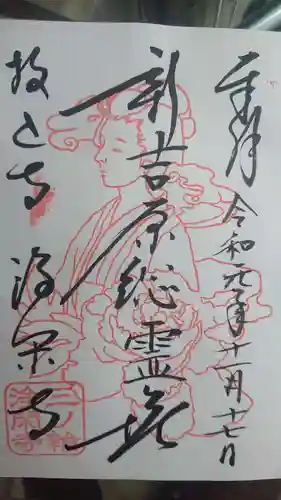 奉拝
令和元年十一月十七日
新吉原総霊塔
投込寺
浄閑寺